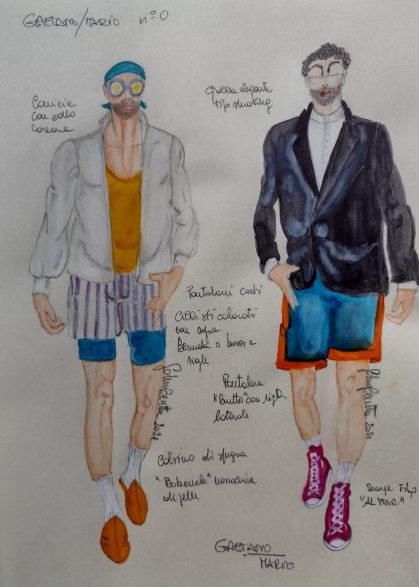 GAETANO/MARIO n°0
Camicia
con collo
Coreana
Giacca elegante
Tipo smoking
Pantaloni corti
Ciclisti colorati
con sopra
Bermuda o boxer a
righe
Pantalone
"Brutto" con righe
laterale
Calzino di spugna
"Babouche" marocchina
di pelle
2021
2021
Scarpe Tipo
"ALL STAR"
GAETANO
MARIO